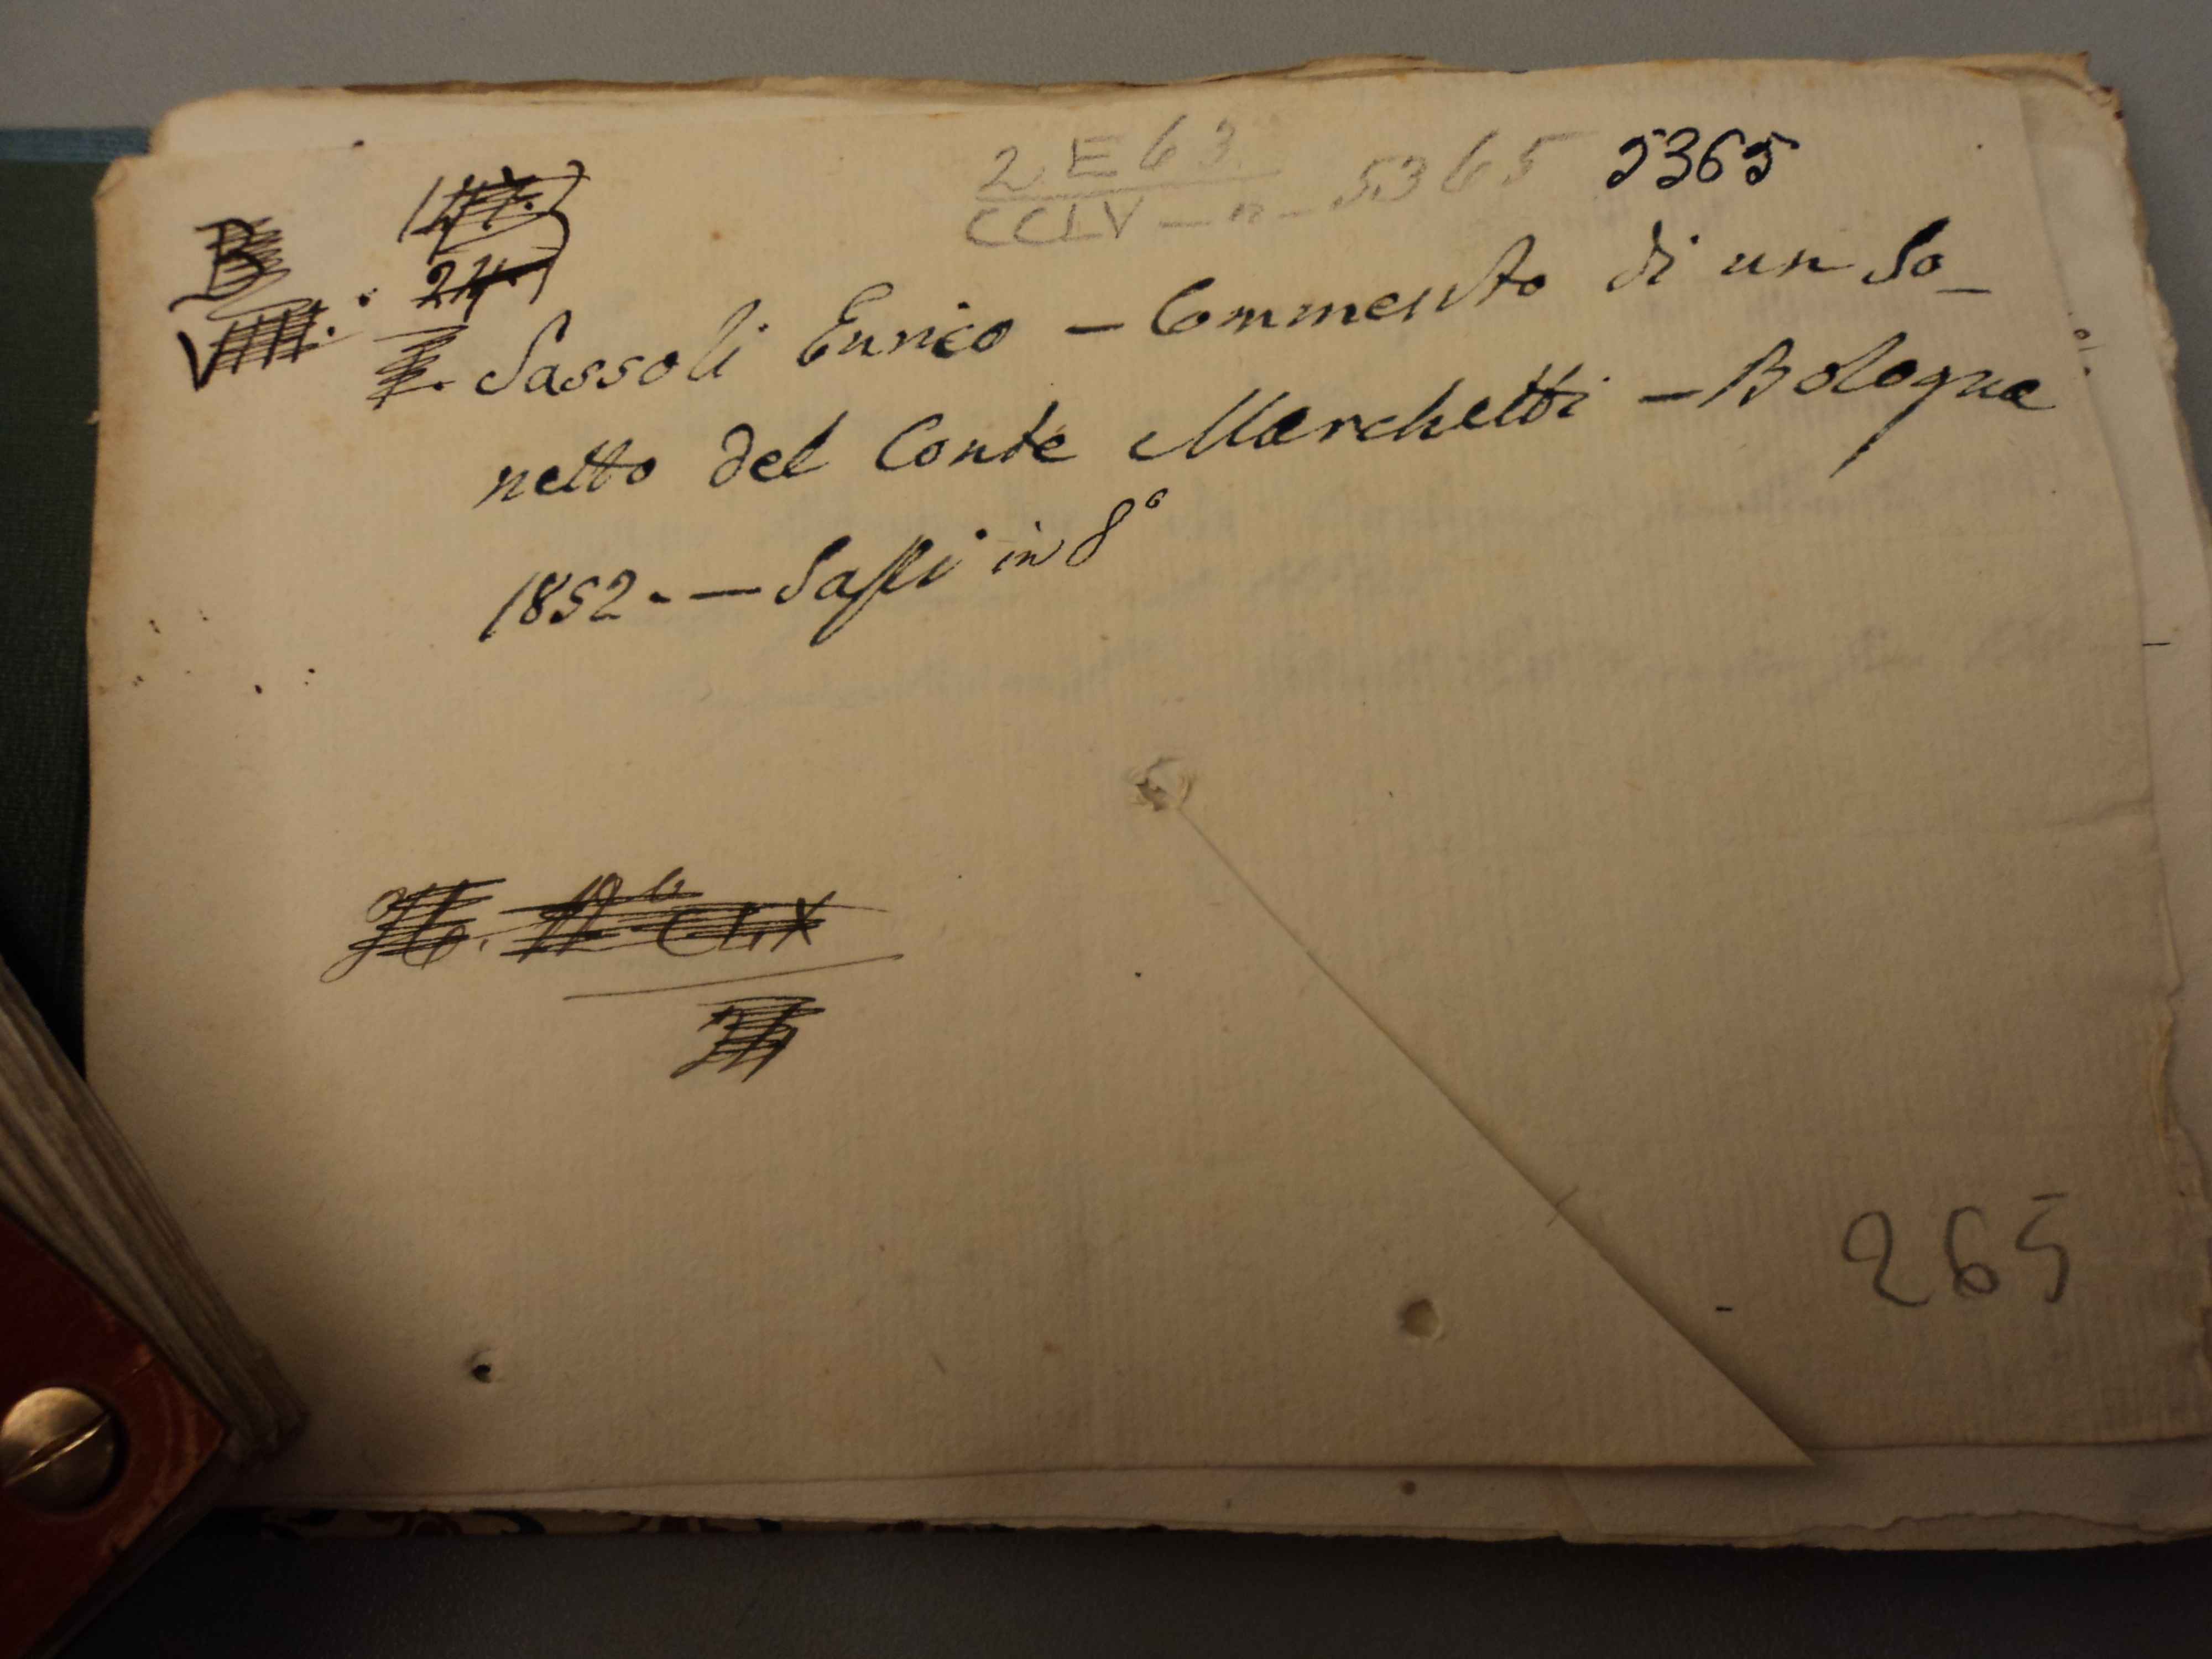 2 E 63
CCLV - n - 5365 5365
B
VIII.
24
Sassoli Enrico - Commento di un So-
netto del Conte Marchetti - Bologna
1852. - Sassi in 8°
265